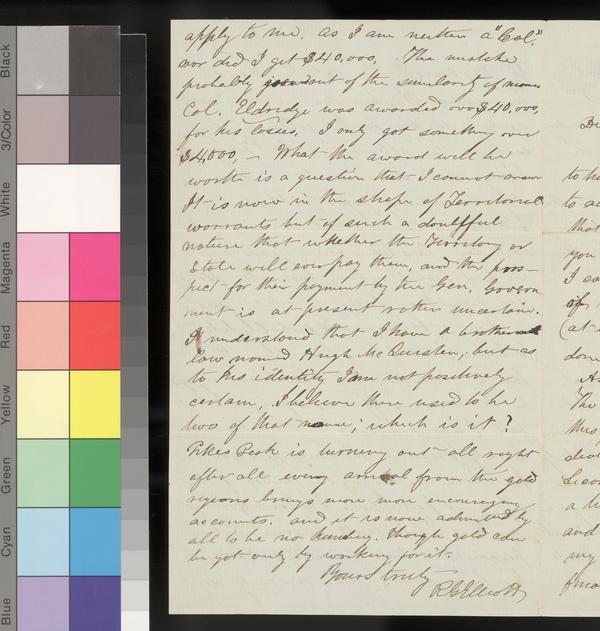 apply to me. as I am neither a "Col."
nor did I get $40,000. The mistake
probably out of the similarity of names
Col. Eldridge was awarded over $40,000,
for his losses, I only got something over
$4,000, – What the award will be
worth is a question that I cannot answer
It is now in the shape of Territorial
warrants but of such a doubtful
nature that whether the Territory or
State will ever pay them, and the pros-
pect for their payment by the Gen. Govern
ment is at present rather uncertain.
I understand that I have a brother in
law named Hugh McQuisten, but as
to his identity I am not positively
certain, I believe there used to be
two of that name; which is it?
Pikes Peak is turning out all right
after all every arrival from the gold
regions brings more encouraging
accounts. and it is now admitted by
all to be no humbug. though gold can
be got only by working for it.
Yours truly
R G Elliott
Black
3/Color
White
Magenta
Red
Yellow
Green
Cyan
Blue
to
to
that
you
I
of
(at
done
The
a
and
my